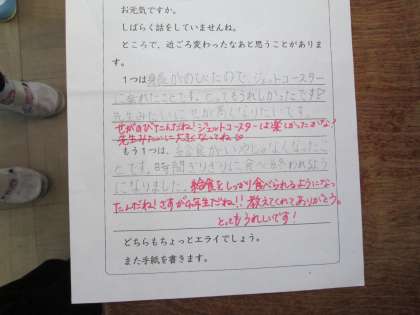 お元気ですか。
しばらく話をしていませんね。
ところで、近ごろ変わったなあと思うことがあります。
1つは身長がのびたので、ジェットコースター
に乗れたことです。とってもうれしかったです。
先生みたいにせが高くなりたいです。
せがのびたんだね!ジェットコースターは楽しかったかな?
先生みたいに大きくなってね
もう1つは、給食がいやじゃなくなったこ
とです。時間ぎりぎりに食べ終われるよう
になりました。給食をしっかり食べられるようになっ
たんだね!さすが4年生だね!!教えてくれてありがとう。
とってもうれしいです!
どちらもちょっとエライでしょう。
また手紙を書きます。